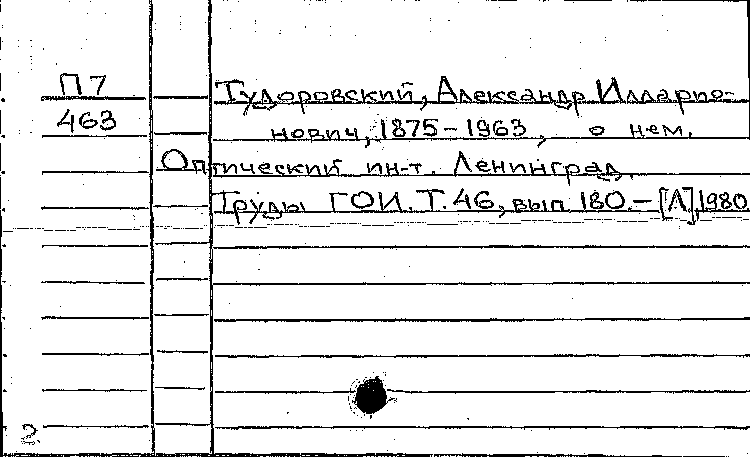 П7
463
Тудоровский, Александр Илларио-
нович, 1875-1963, о нем.
Оптический ин-т. Ленинград.
Труды ГОИ. Т. 46, вып 180. - [Л], 1980
2.